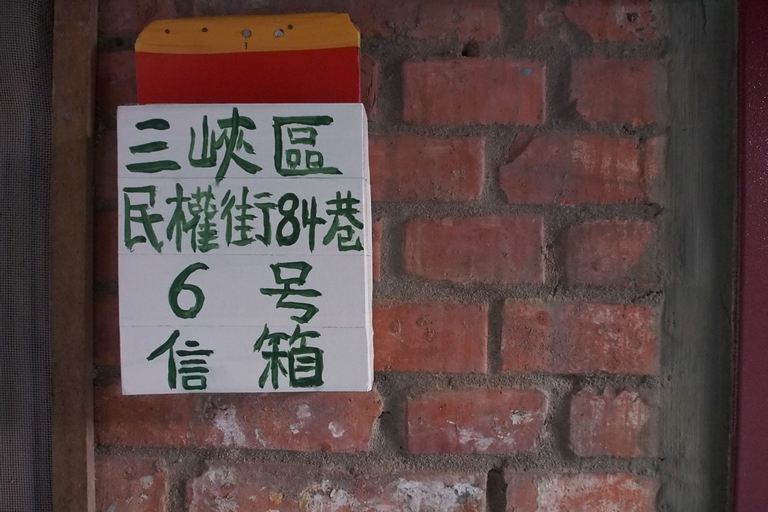 三峽區
民權街84巷
6号
信箱